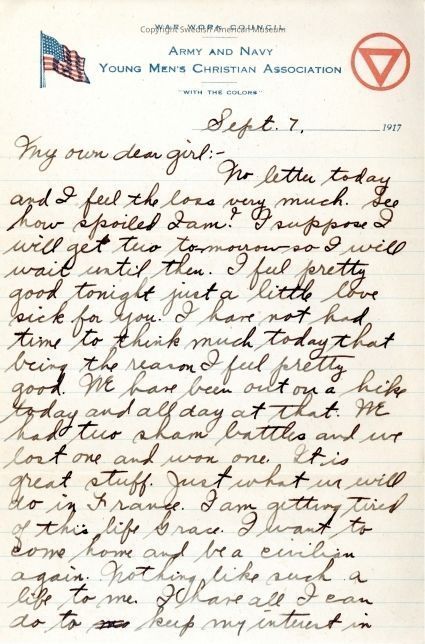 WAR WORK COUNCIL
Copyright Swedish American Museum
ARMY AND NAVY
YOUNG MEN'S CHRISTIAN ASSOCIATION
"WITH THE COLORS"
Sept. 7, 1917
My own dear girl:-
No letter today
and I feel the loss very much. See
how spoiled I am? I suppose I
will get two tomorrow so I will
wait until then. I feel pretty
good tonight just a little love
sick for you. I have not had
time to think much today that
being the reason I feel pretty
good. We have been out on a hike
today and all day at that. We
had two sham battles and we
lost one and won one. It is
great stuff. Just what we will
do in France. I am getting tired
of this life Grace. I want to
come home and be a civilian
again. Nothing like such a
life to me. I have all I can
do to keep my interest in